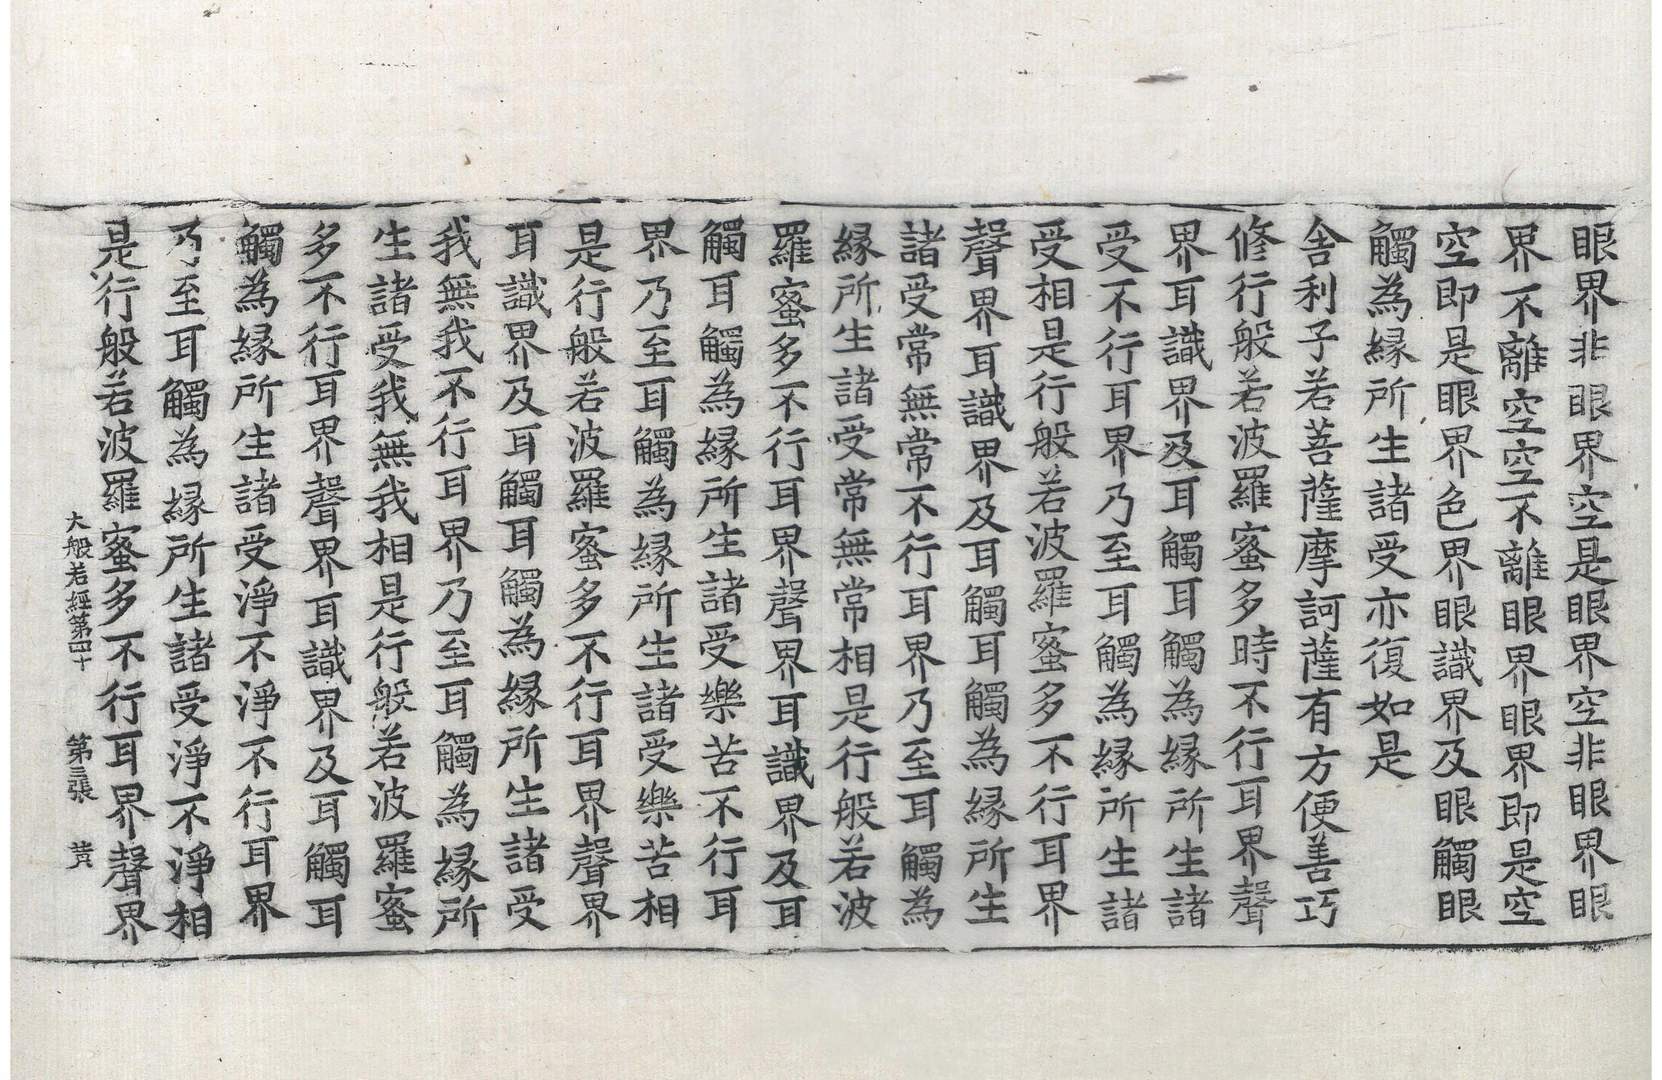 眼界非眼界空是眼界空非眼界眼
界不離空空不離眼界眼界即是空
空即是眼界色界眼識界及眼觸眼
觸為縁所生諸受亦復如是
舍利子若菩薩摩訶薩有方便善巧
修行般若波羅蜜多時不行耳界聲
界耳識界及耳觸耳觸為縁所生諸
受不行耳界乃至耳觸為縁所生諸
受相是行般若波羅蜜多不行耳界
聲界耳識界及耳觸耳觸為縁所生
諸受常無常不行耳界乃至耳觸為
縁所生諸受常無常相是行般若波
羅蜜多不行耳界聲界耳識界及耳
觸耳觸為縁所生諸受樂苦不行耳
界乃至耳觸為縁所生諸受樂苦相
是行般若波羅蜜多不行耳界聲界
耳識界及耳觸耳觸為縁所生諸受
我無我不行耳界乃至耳觸為縁所
生諸受我無我相是行般若波羅蜜
多不行耳界聲界耳識界及耳觸耳
觸為縁所生諸受淨不淨不行耳界
乃至耳觸為縁所生諸受淨不淨相
是行般若波羅蜜多不行耳界聲界
大般若經第四十 第三張 黄